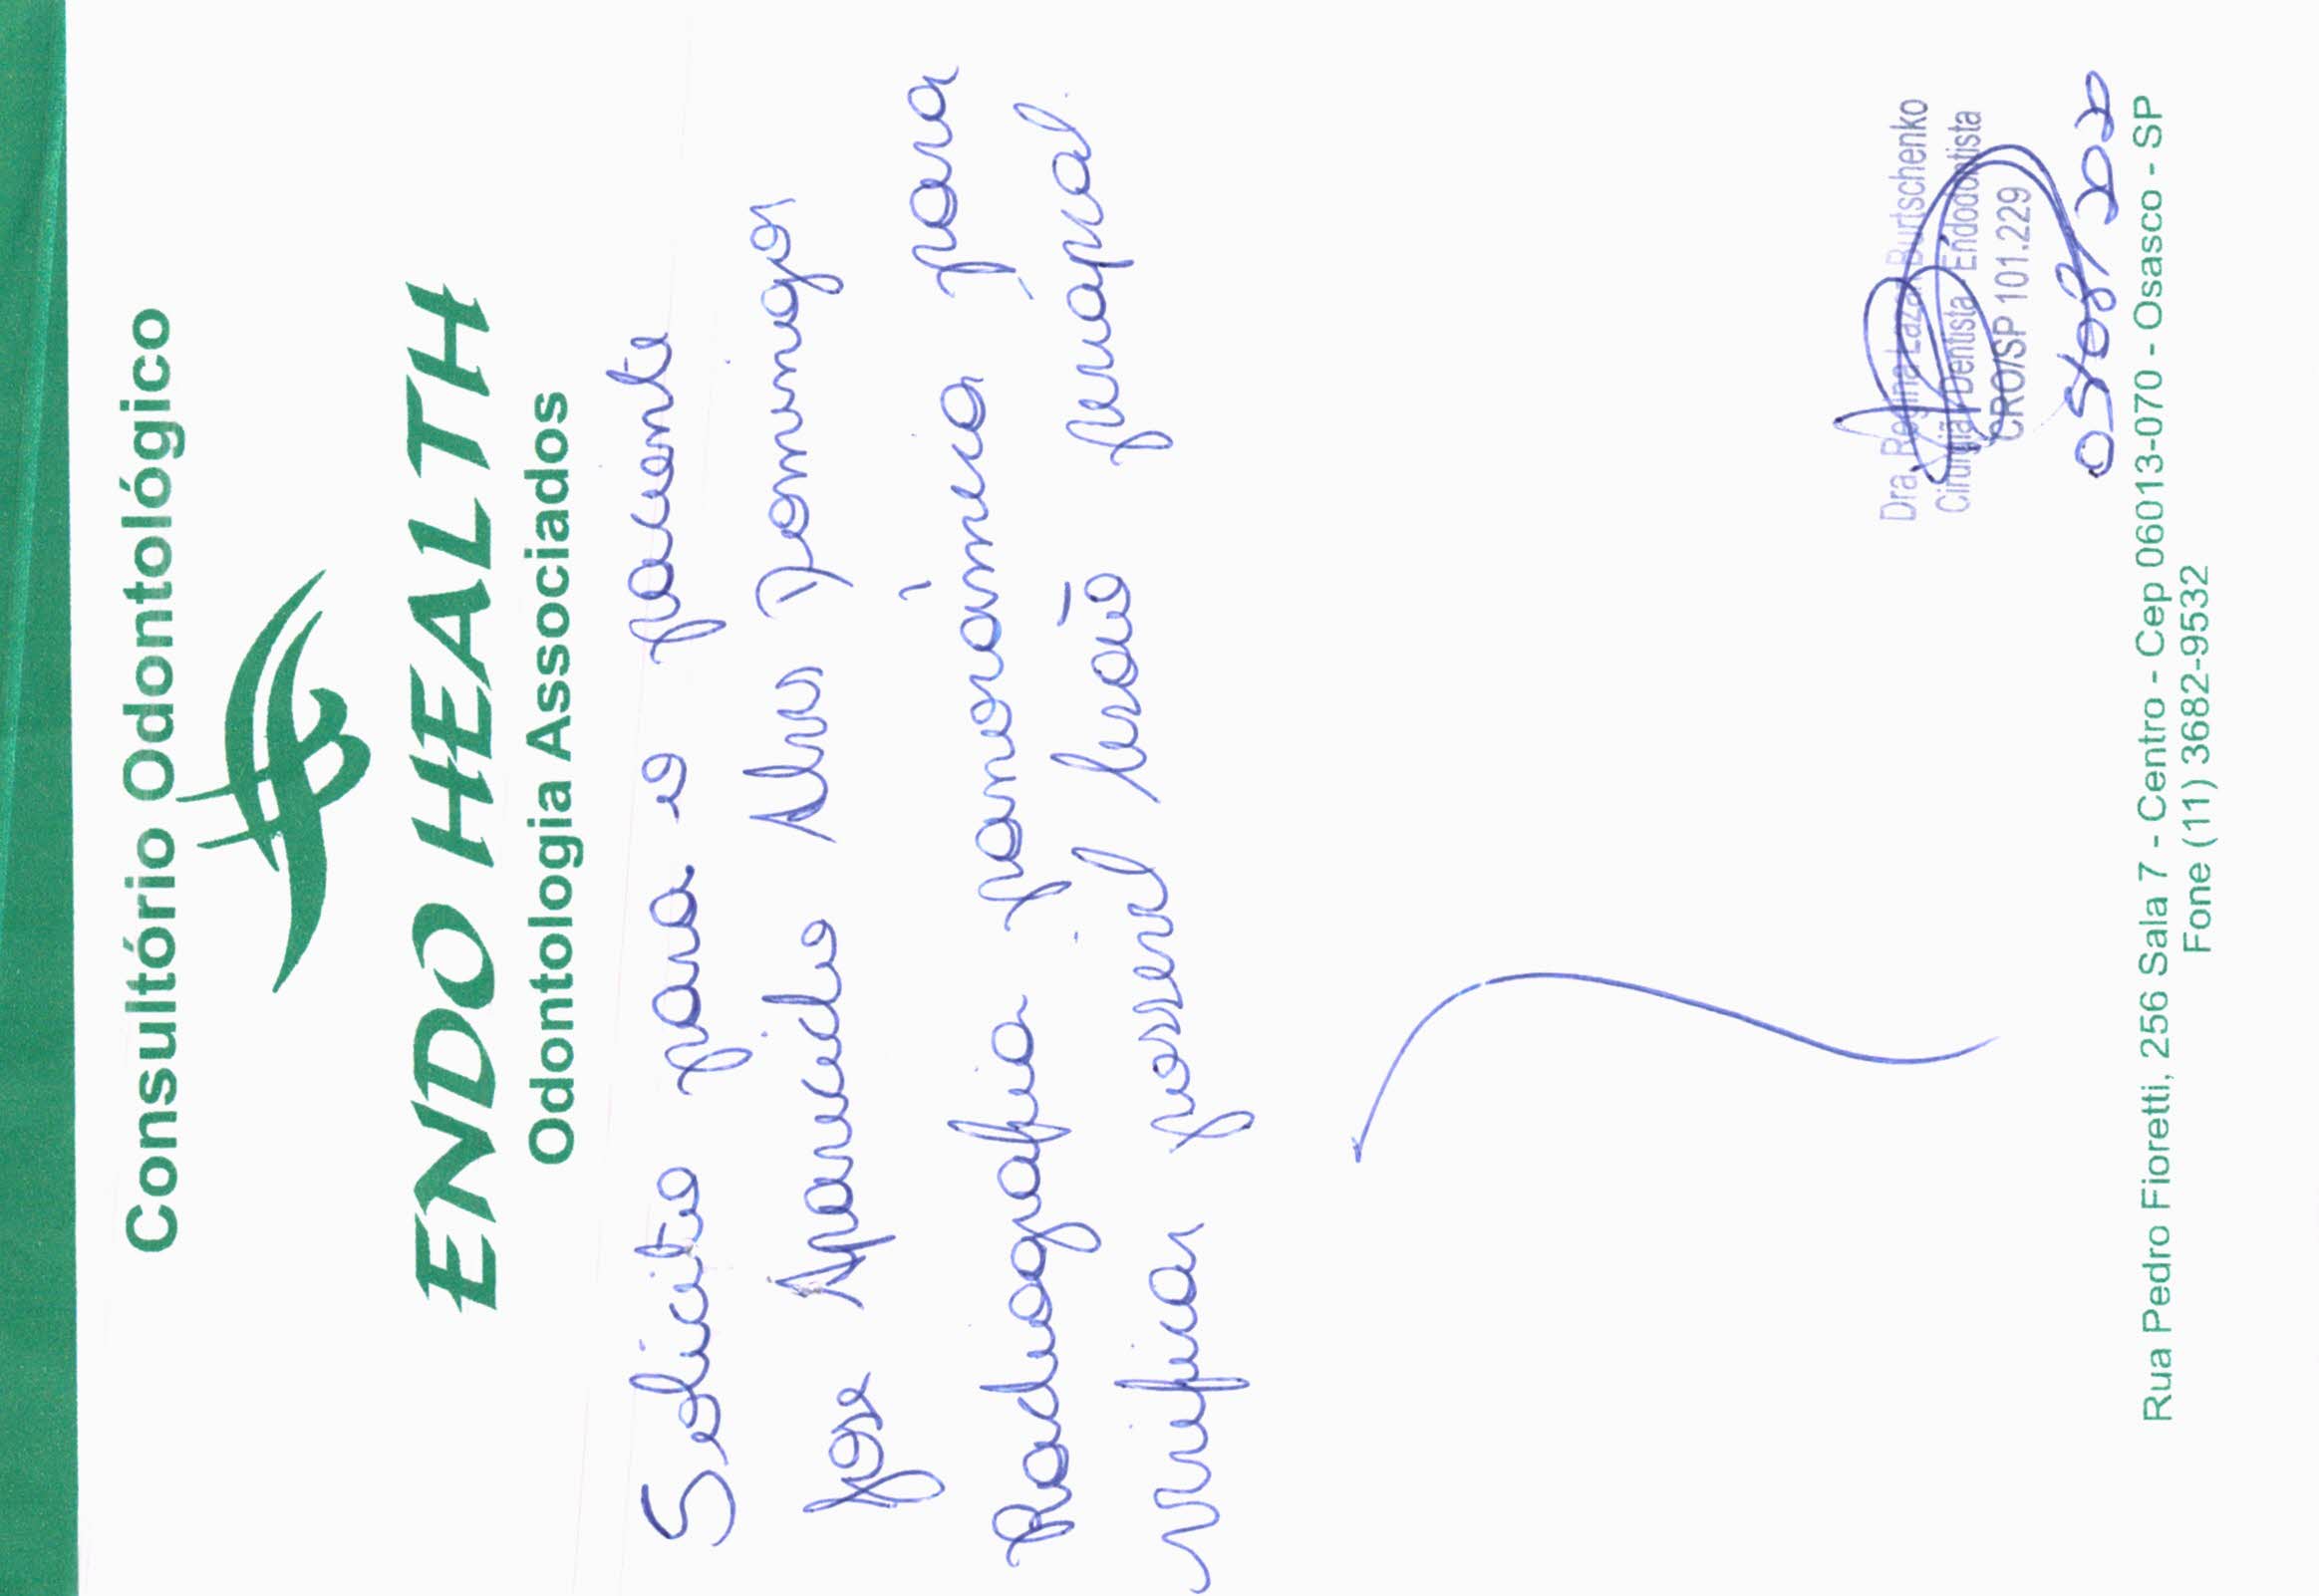 Consultório Odontológico
ENDO HEALTH
Odontologia Associados
Solicito para o paciente
Jose Aparecido Alves Domingos
Radiografia panorâmica para
verificar possivel lesão periapical.
Dra. Regina Lazari Burtschenko
Cirurgiã Dentista Endodontista
CRO/SP 101.229
05/08/202
Rua Pedro Fioretti, 256 Sala 7 - Centro - Cep 06013-070 - Osasco - SP
Fone (11) 3682-9532